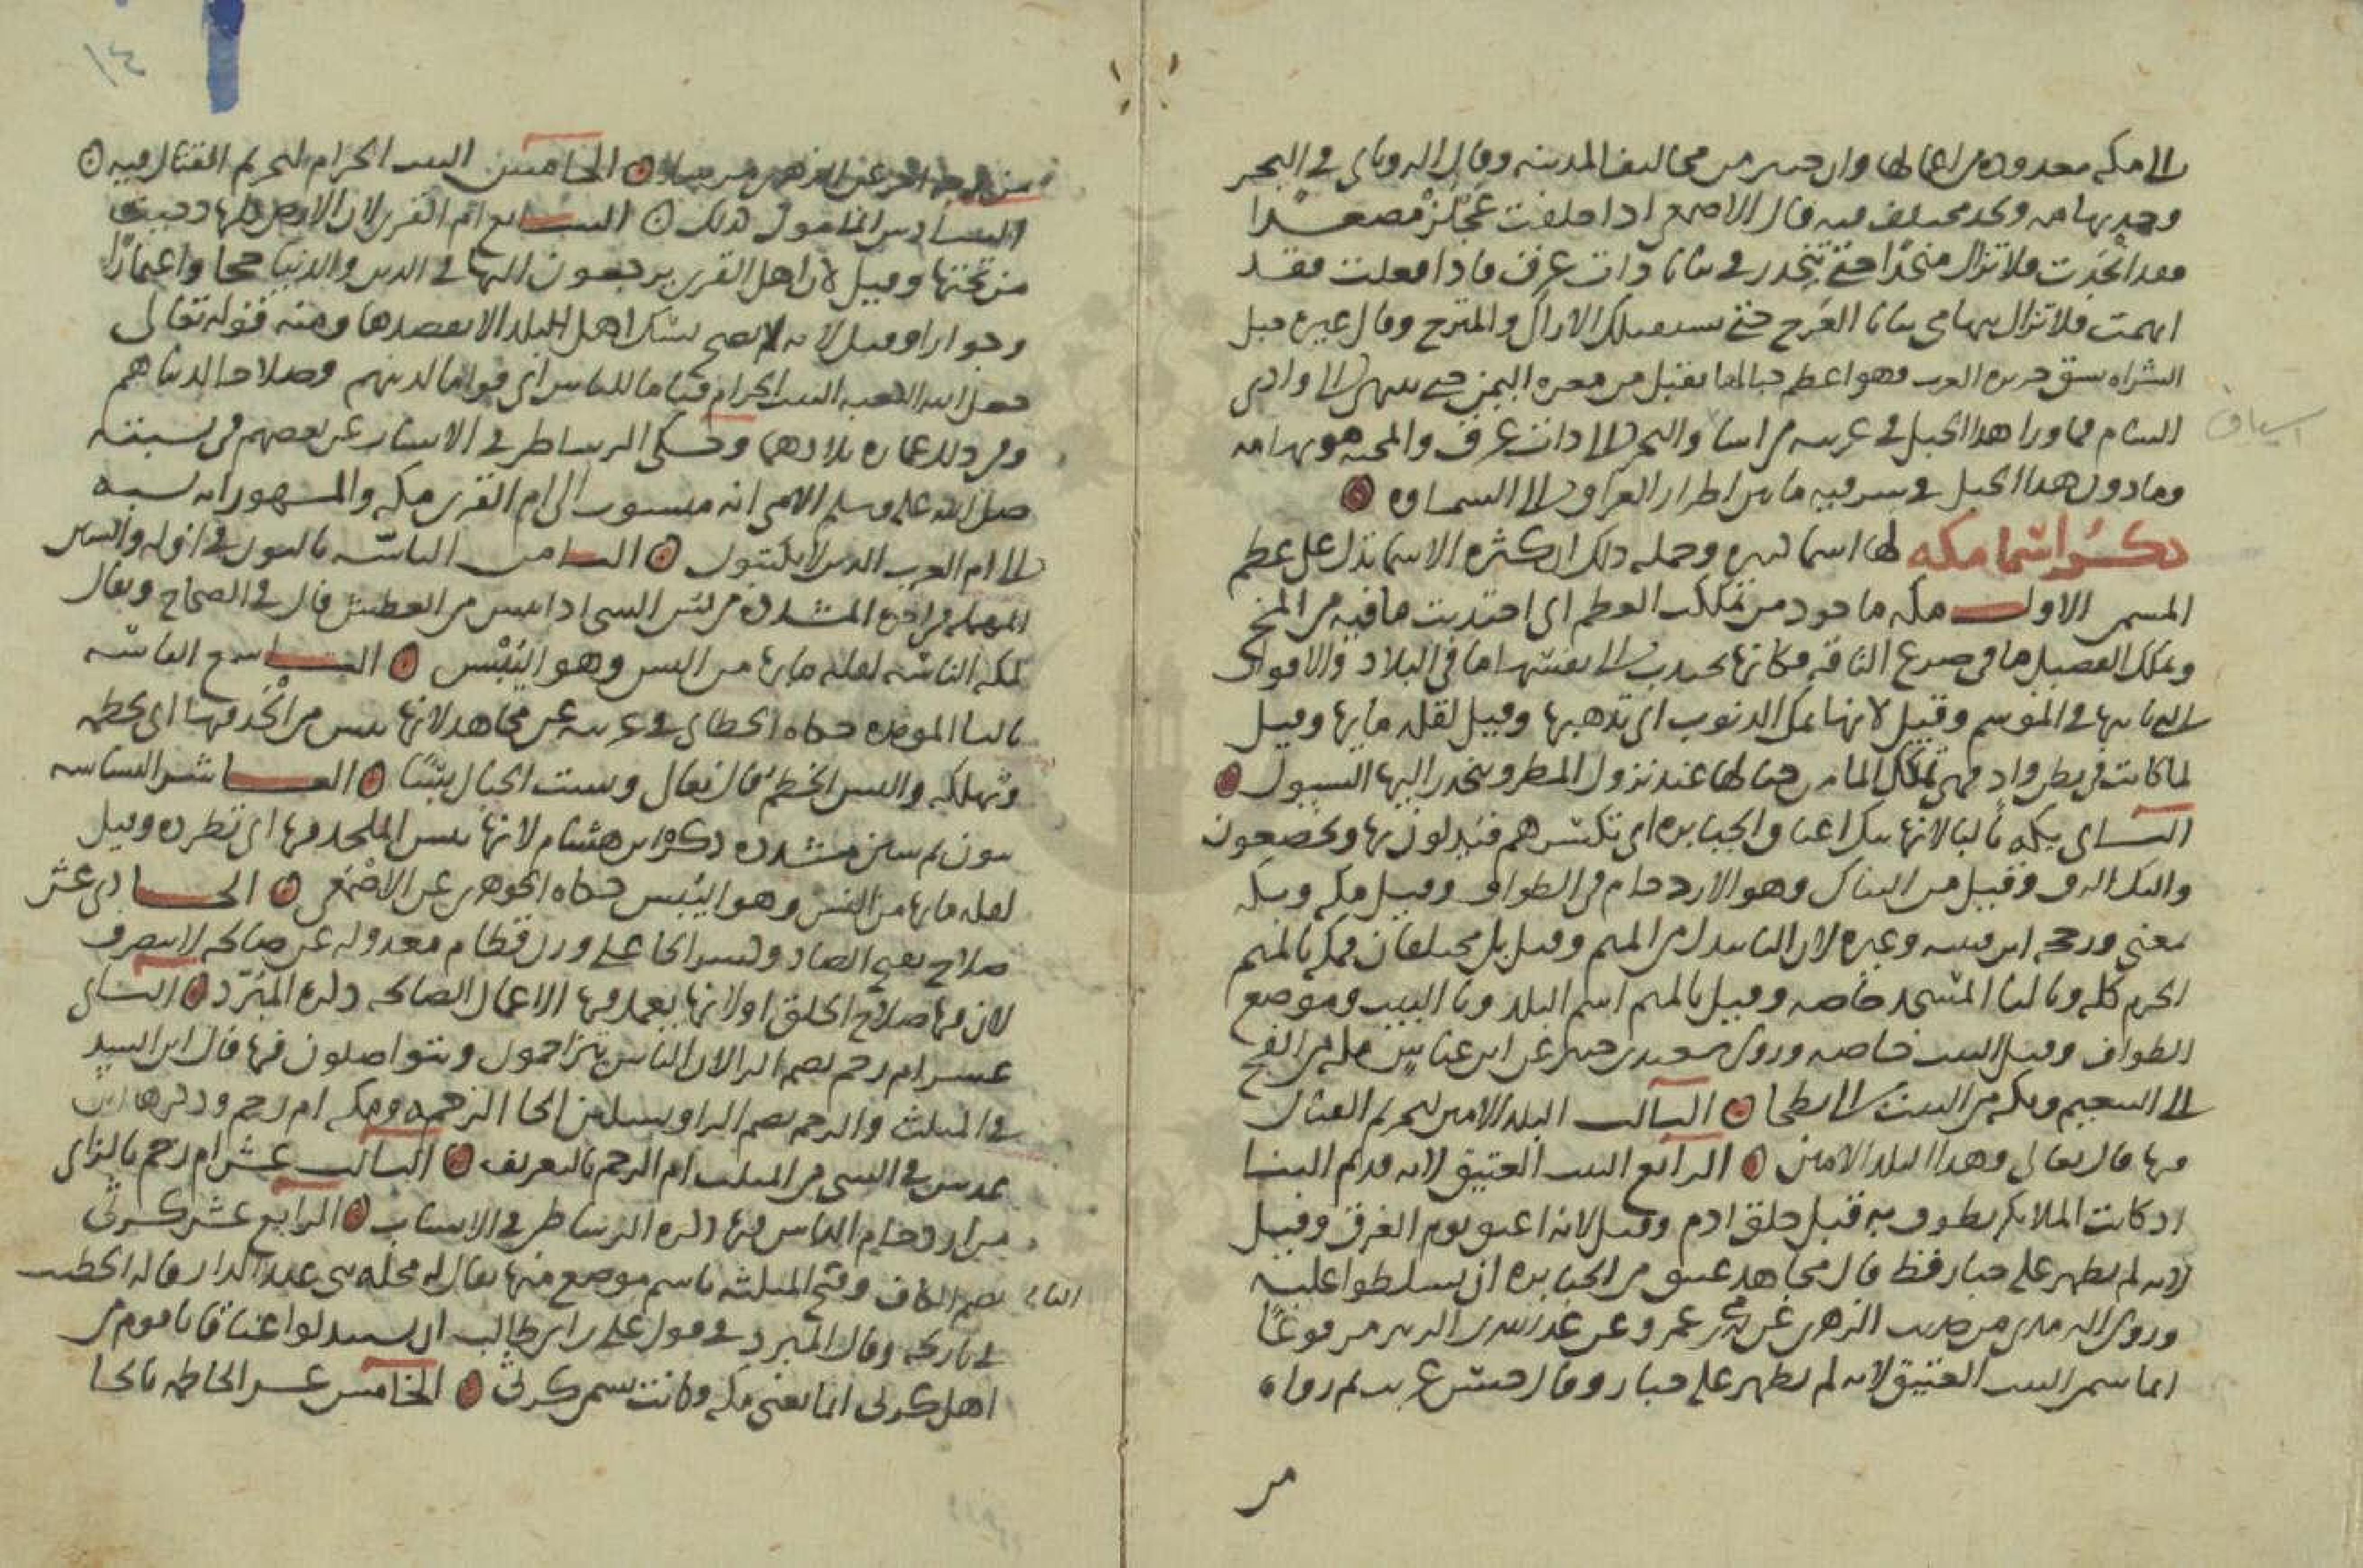 الى مكه معدوده من اعمالها وان حسر من مخاليف المدينه وقال الرويانى فى البحر
وحد تهامه ونجد مختلف فيه قال الاصمعى اذا خلفت عجلزًا مصعدًا
فقد انجدت فلا تزال منجدًا حتى تنحدر فى ثنايا ذات عرق فاذا فعلت فقد
اتهمت فلا تزال متهما فى ثنايا العرج حتى يستقبلك الاراك والمدرج وقال غيره جبل
السراه يشق جزيره العرب وهو اعظم جبالها يقبل من قعره اليمن حتى ينتهى الى وادى
الشام فما ورا هذا الجبل فى غربيه من اسيا والبحر الى ذات عرق والجحفه هو تهامه
اسياف
وما دون هذا الجبل فى شرقيه ما بين اطرار العراق الى السماوه
ذكر اسما مكه لها اسما كثيره وجمله ذلك ان كثره الاسما تدل على عظم
المسمى الاول مكه ماخوذ من تمككت العظم اى اجتذبت ما فيه من المخ
وتمكك الفصيل ما فى ضرع الناقه فكانها تجذب الى نفسها ما فى البلاد والاقوات
التى تاتيها فى الموسم وقيل لانها تمك الذنوب اى تذهبها وقيل لقله مايها وقيل
لما كانت فى بطن واد فهى تمكك الما من جبالها عند نزول المطر وينحدر اليها السيول
الثانى بكه بالبا لانها تبك اعناق الجبابره اى تكسرهم فيذلون بها ويخضعون
والبك الدق وقيل من التباك وهو الازدحام فى الطواف وقيل مكه وبكه
بمعنى ورجحه ابن قتيبه وغيره لان البا تبدل من الميم وقيل بل مختلفان فمكه بالميم
الحرم كله وبالبا المسجد خاصه وقيل بالميم اسم البلد وبالبا البيت وموضع
الطواف وقيل البيت خاصه وروى سعيد بن جبير عن ابن عباس مكه من الفج
الى التنعيم وبكه من البيت الى البطحا الثالث البلد الامين لتحريم القتال
فيها قال تعالى وهذا البلد الامين الرابع البيت العتيق لانه قديم البنا
اذ كانت الملايكه يطوف به قبل خلق ادم وقيل لانه اعتق يوم الغرق وقيل
لانه لم يظهر عليه جبار قط قال مجاهد عتيق من الجبابره ان يسلطوا عليه
وروى الترمذى من حديث الزهرى عن محمد بن عروه عن عبدالله بن الزبير مرفوعًا
انما سمى البيت العتيق لانه لم يظهر عليه جبار وقال حسن غريب ثم رواه
من
من وجه اخر عن الزهرى مرسلا الخامس البيت الحرام لتحريم القتال فيه
السادس المامون كذلك السابع ام القرى لان الارض كلها دحيت
من تحتها وقيل لان اهل القرى يرجعون اليها فى الدين والدنيا حجا واعتمارًا
وجوارا وقيل لانه لا يصح نسك اهل البلد الا بقصدها ومنه قوله تعالى
جعل الله الكعبه البيت الحرام قياما للناس اى قواما لدينهم وصلاحا لدنياهم
وفى ذلك عماره بلادهم وحكى الرشاطى فى الانساب عن بعضهم فى نسبته
صلى الله عليه وسلم الامى انه منسوب الى ام القرى مكه والمشهور انه نسبه
الى ام العرب الذين لا يكتبون الثامن الناسه بالنون فى اوله والسين
المهمله فى اخره المشدده من نس الشى اذا يبس من العطش قال فى الصحاح ويقال
لمكه الناسه لقله مايها من النس وهو اليبس التاسع الباسه
بالبا الموحده حكاه الخطابى فى غريبه عن مجاهد لانها تبس من الحد فيها اى تحطمه
وتهلكه والبس الحطم قال تعالى وبست الجبال بسًا العاشر النساسه
بنون ثم سين مشدده ذكره ابن هشام لانها تنس الملحد فيها اى تطرده وقيل
لقله مايها من النس وهو اليبس حكاه الجوهرى عن الاصمعى الحادى عشر
صلاح بفتح الصاد وكسر الحا على وزن قطام معدوله عن صالحه لا ينصرف
لان فيها صلاح الخلق او لانها يعمل فيها الاعمال الصالحه ذكره المبرد الثانى
عشر ام رحم بضم الرا لان الناس يتراحمون ويتواصلون فيها قال ابن السيد
فى المثلث والرحم بضم الرا وبسكون الحا الرحمه ومكه ام رحم وذكرها ابن
عديس فى الشى من المثلث ام الرحم بالتعريف الثالث عشر ام زحم بالزاى
من ازدحام الناس فيها ذكره الرشاطى فى الانساب الرابع عشر كوثى
بضم الكاف وفتح المثلثه باسم موضع منها يقال له محله بنى عبد الدار قاله الخطيب
الثا
فى تاريخه وقال المبرد فى قول على بن ابى طالب ان تسيلوا عنا فانا قوم من
اهل كوثى انما يعنى مكه وكانت تسمى كوثى الخامس عشر الحاطمه بالحا